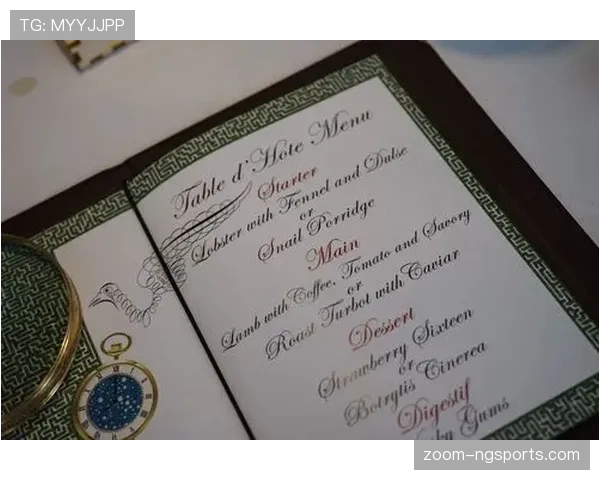 TG: MYYJJPP
Table d'Hote Menu
Starter
Lobster with Fennel and Dulse
or
Snail Porridge
Main
Lamb with Coffee, Tomato and Savory
or
Roast Turbot with Caviar
Dessert
Strawberry Sixteen
or
Botrytis Cinerea
Digestif
Gums
zoom-ngsports.com